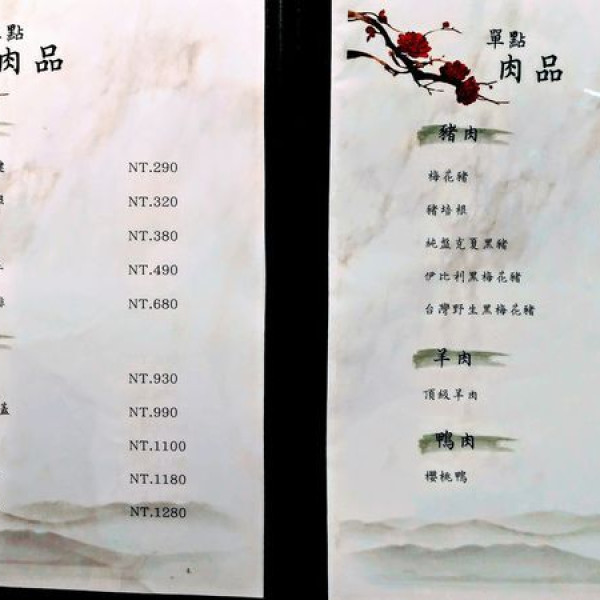 單點
肉品
NT.290
NT.320
NT.380
NT.490
NT.680
NT.930
蓋 NT.990
NT.1100
NT.1180
NT.1280
4
單點
肉品
豬肉
梅花豬
豬培根
純盤克夏黑豬
伊比利黑梅花豬
台灣野生黑梅花豬
羊肉
頂級羊肉
鴨肉
櫻桃鴨